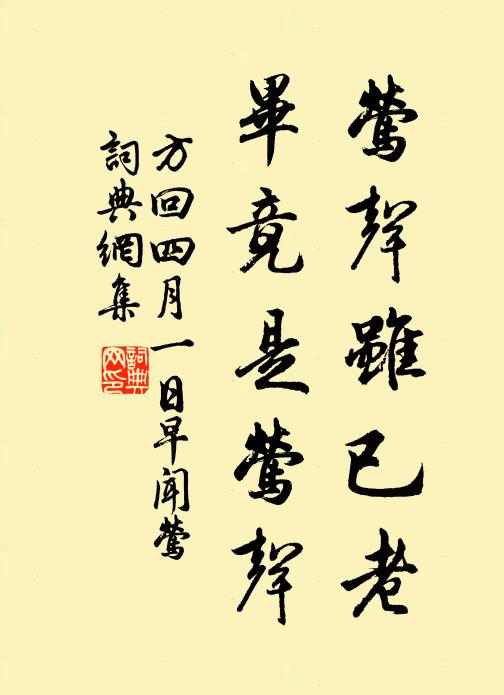 鶯聲雖已老
畢竟是鶯聲
方回四月一日早聞鶯
詞典網集
詞典网印